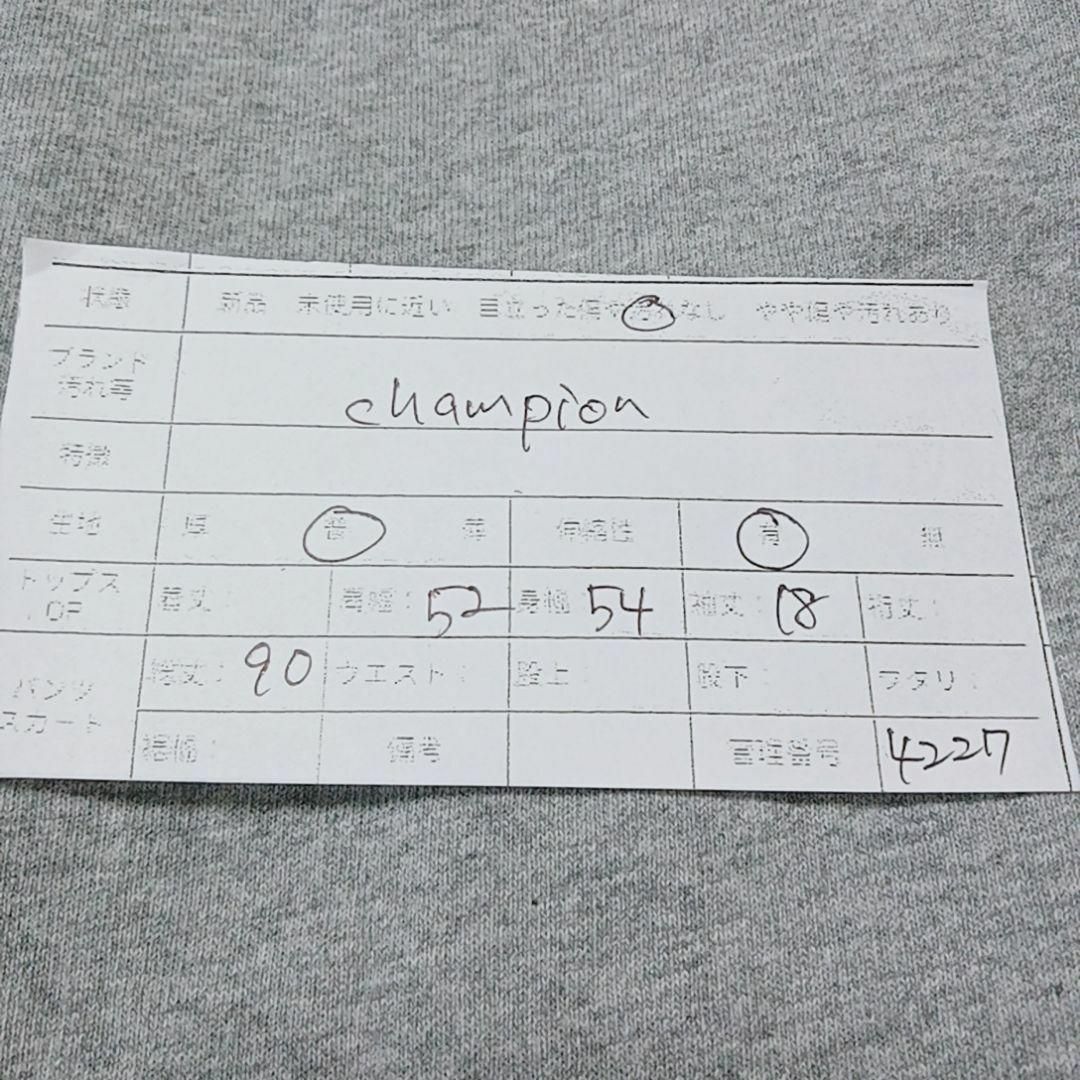 状態 新品 未使用に近い 目立った傷や汚れなし やや傷や汚れあり
ブランド
汚れ等 champion
特徴
生地 厚 普 薄 伸縮性 有 無
トップス
OP 着丈: 肩幅:52 身幅 54 袖丈:18 裄丈:
パンツ
スカート 総丈:90 ウエスト: 股上: 股下: ワタリ:
裾幅: 備考 管理番号 4227